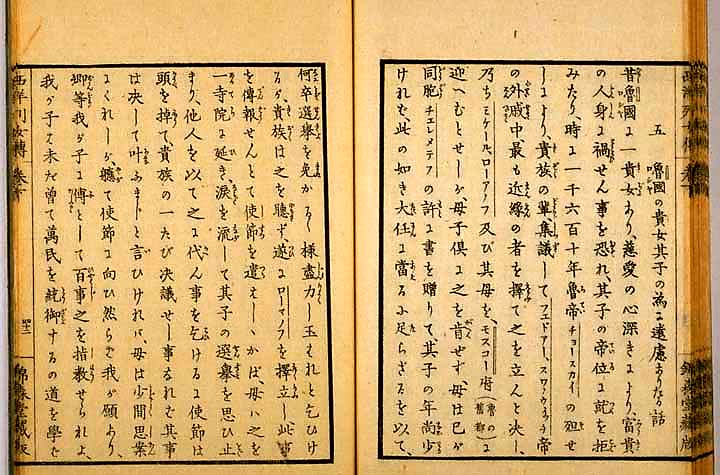 五 魯國の貴女其子の為に遠慮ありたる話
昔魯國に一貴女あり、慈愛の心深きにより、富貴
の人身に禍せん事を恐れ、其子の帝位に就を拒
みたり、時に一千六百十年魯帝チョースカイの殂せ
しにより、貴族の輩集議してフェドアー、帝
の外戚中最も近縁の者を擇て之を立んと決し、
乃ちミケール、ローマノフ及び其母を、モスコー府(魯の舊都)に
迎へむとせしが、母子倶に之を肯せず、母は已が
同胞チエレメテフの許に書を贈りて、其子の年尚少
ければ、此の如き大任に當るに足らざるを以て、
何卒選擧を免かるゝ様盡力し玉はれと乞ひけ
るが、貴族は之を聽ず、遂にローマノフを擇立し此事
を傳報せんとて使節を遣はしゝかば、母ハ之を
一寺院に延き、涙を流して其子の選擧を思ひ止
まり、他人を以て之に代ん事を乞けるに使節は
頭を掉て、貴族の一たび決議せし事なれば其事
は決して叶ふまじと言ひければ、母は少間思案
にくれしが、軈て使節に向ひ然らば我が願あり、
卿等我が子に傅として百事之を指教せられよ、
我が子は未だ曾て萬民を統御するの道を學ば
西洋列女傳
錦森堂藏版